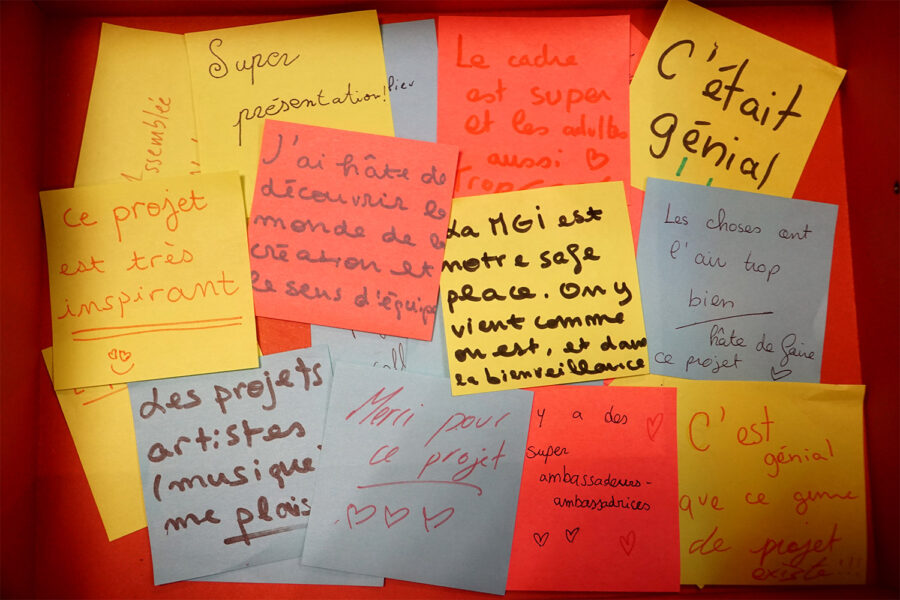 Super
présentation!
Assemblée
Le cadre
est super
et les adultes
aussi ♡
C'était
génial
J'ai hâte de
découvrir le
monde de la
création et
le sens d'équipe
Ce projet
est très
inspirant
La MGI est
notre safe
place. On y
vient comme
on est, et dans
la bienveillance
Les choses ont
l'air trop
bien
hâte de faire
ce projet ♡
Les projets
artistes
(musique
me plais
Merci pour
ce projet
♡♡♡
y a des
super
ambassadeurs-
ambassadrices
C'est
génial
que ce genre
de projet
existe!!!